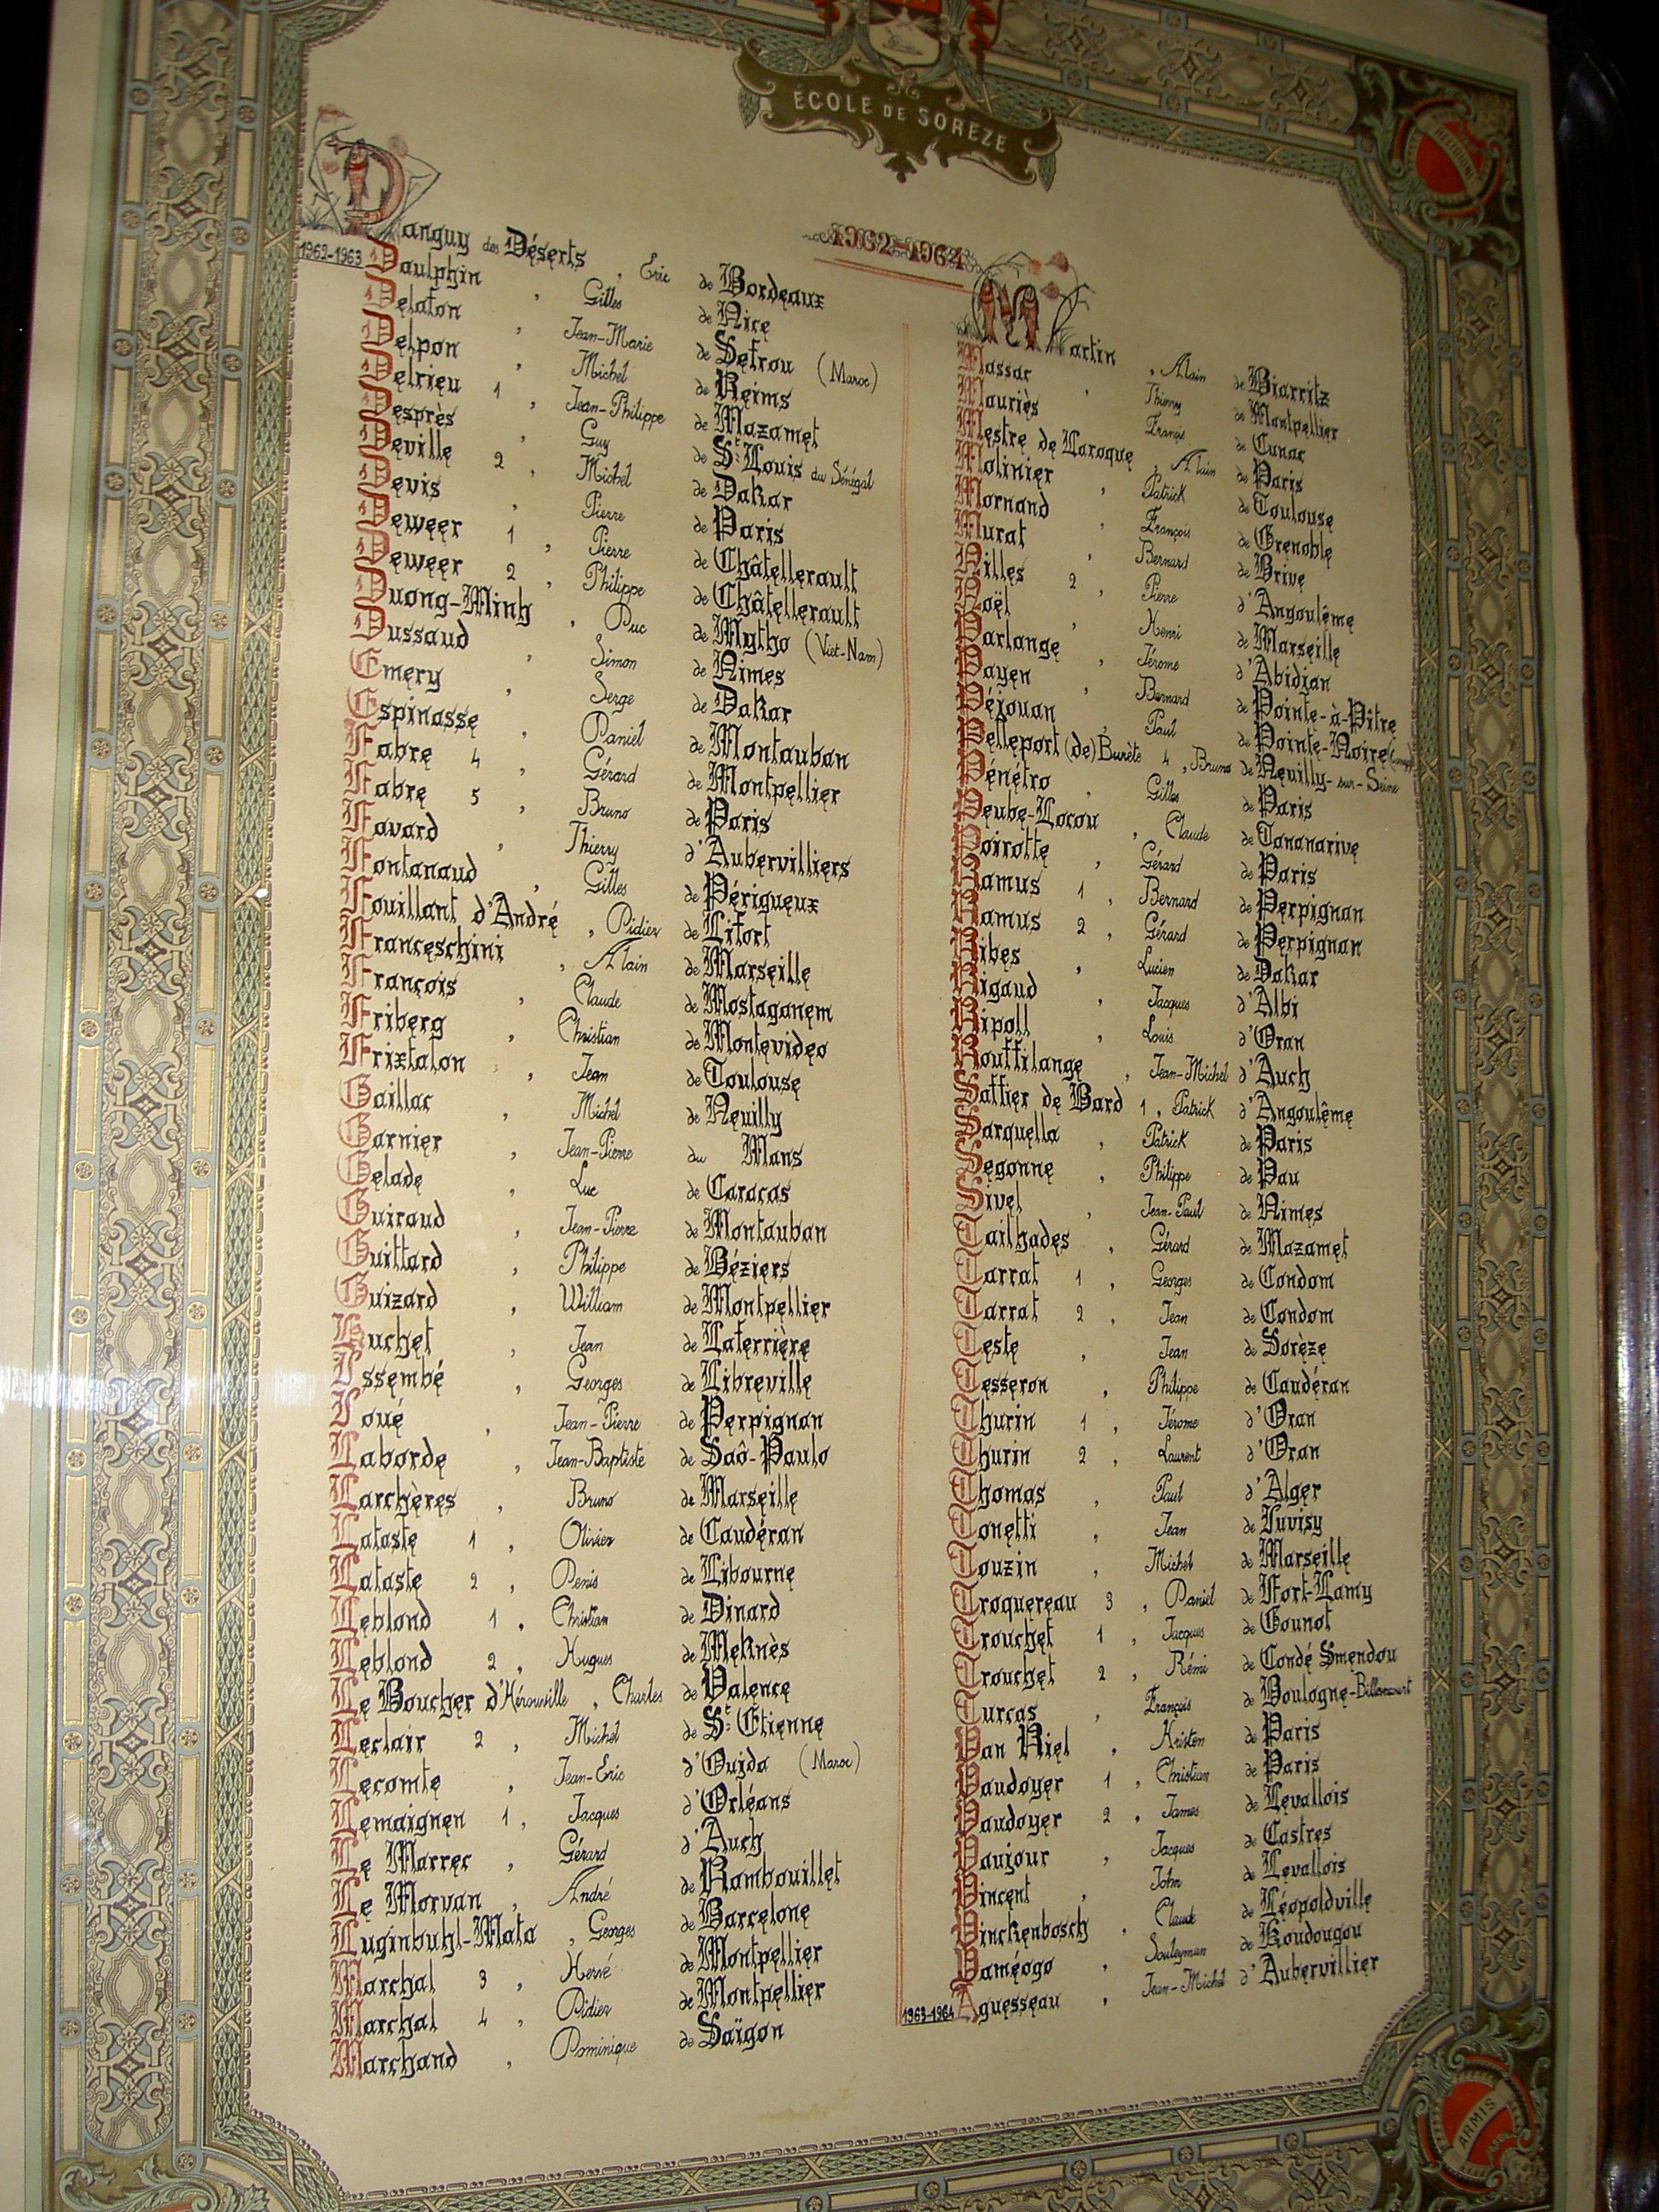 ÉCOLE DE SORÈZE
RELIGIONI
1962-1964
1962-1963
Danguy des Déserts , Eric de Bordeaux
Daulphin , Gilles de Nice
Delaton , Jean-Marie de Sefrou (Maroc)
Delpon , Michel de Reims
Delrieu 1 , Jean-Philippe de Mazamet
Desprès , Guy de St Louis du Sénégal
Deville 2 , Michel de Dakar
Devis , Pierre de Paris
Deweer 1 , Pierre de Châtellerault
Deweer 2 , Philippe de Châtellerault
Duong-Minh , Duc de Mytho (Viet-Nam)
Dussaud , Simon de Nimes
Emery , Serge de Dakar
Espinasse , Daniel de Montauban
Fabre 4 , Gérard de Montpellier
Fabre 5 , Bruno de Paris
Favard , Thierry d'Aubervilliers
Fontanaud , Gilles de Périgueux
Fouillant d'André , Didier de Lifort
Franceschini , Alain de Marseille
François , Claude de Mostaganem
Friberg , Christian de Montevideo
Frixtalon , Jean de Toulouse
Gaillac , Michel de Neuilly
Garnier , Jean-Pierre du Mans
Gelade , Luc de Caracas
Guiraud , Jean-Pierre de Montauban
Guittard , Philippe de Béziers
Guizard , William de Montpellier
Huchet , Jean de Laferrière
Issembé , Georges de Libreville
Joué , Jean-Pierre de Perpignan
Laborde , Jean-Baptiste de Saô-Paulo
Larchères , Bruno de Marseille
Lataste 1 , Olivier de Caudéran
Lataste 2 , Denis de Libourne
Leblond 1 , Christian de Dinard
Leblond 2 , Hugues de Meknès
Le Boucher d'Hérouville , Charles de Valence
Leclair 2 , Michel de St Étienne
Lecomte , Jean-Eric d'Oujda (Maroc)
Lemaignen 1 , Jacques d'Orléans
Le Marrec , Gérard d'Auch
Le Morvan , André de Rambouillet
Luginbuhl-Mata , Georges de Barcelone
Marchal 3 , Hervé de Montpellier
Marchal 4 , Didier de Montpellier
Marchand , Dominique de Saïgon
Martin , Alain de Biarritz
Massac , Thierry de Montpellier
Mauriès , Francis de Cunac
Mestre de Laroque , Alain de Paris
Molinier , Patrick de Toulouse
Mornand , François de Grenoble
Murat , Bernard de Brive
Nilles 2 , Pierre d'Angoulême
Noël , Henri de Marseille
Parlange , Jérome d'Abidjan
Payen , Bernard de Pointe-à-Pitre
Péjouan , Paul de Pointe-Noire
Pelleport (de) Burète 4 , Bruno de Neuilly-sur-Seine
Pénétro , Gilles de Paris
Peube-Locou , Claude de Tananarive
Poirotte , Gérard de Paris
Ramus 1 , Bernard de Perpignan
Ramus 2 , Gérard de Perpignan
Ribes , Lucien de Dakar
Rigaud , Jacques d'Albi
Ripoll , Louis d'Oran
Rouffilange , Jean-Michel d'Auch
Saffier de Bard 1 , Patrick d'Angoulême
Sarquella , Patrick de Paris
Segonne , Philippe de Pau
Sivel , Jean-Paul de Nimes
Tailhades , Gérard de Mazamet
Tarrat 1 , Georges de Condom
Tarrat 2 , Jean de Condom
Teste , Jean de Sorèze
Tesseron , Philippe de Caudéran
Thurin 1 , Jérome d'Oran
Thurin 2 , Laurent d'Oran
Thomas , Paul d'Alger
Tonetti , Jean de Juvisy
Touzin , Michel de Marseille
Troquereau 3 , Daniel de Fort-Lamy
Trouchet 1 , Jacques de Gounot
Trouchet 2 , Rémi de Condé Smendou
Turcas , François de Boulogne-Billancourt
Van Riel , Kristen de Paris
Vaudoyer 1 , Christian de Paris
Vaudoyer 2 , James de Levallois
Vaujour , Jacques de Castres
Vincent , John de Levallois
Vinckenbosch , Claude de Léopoldville
Yaméogo , Souleyman de Koudougou
1963-1964 Aguesseau , Jean-Michel d'Aubervillier
ARMIS